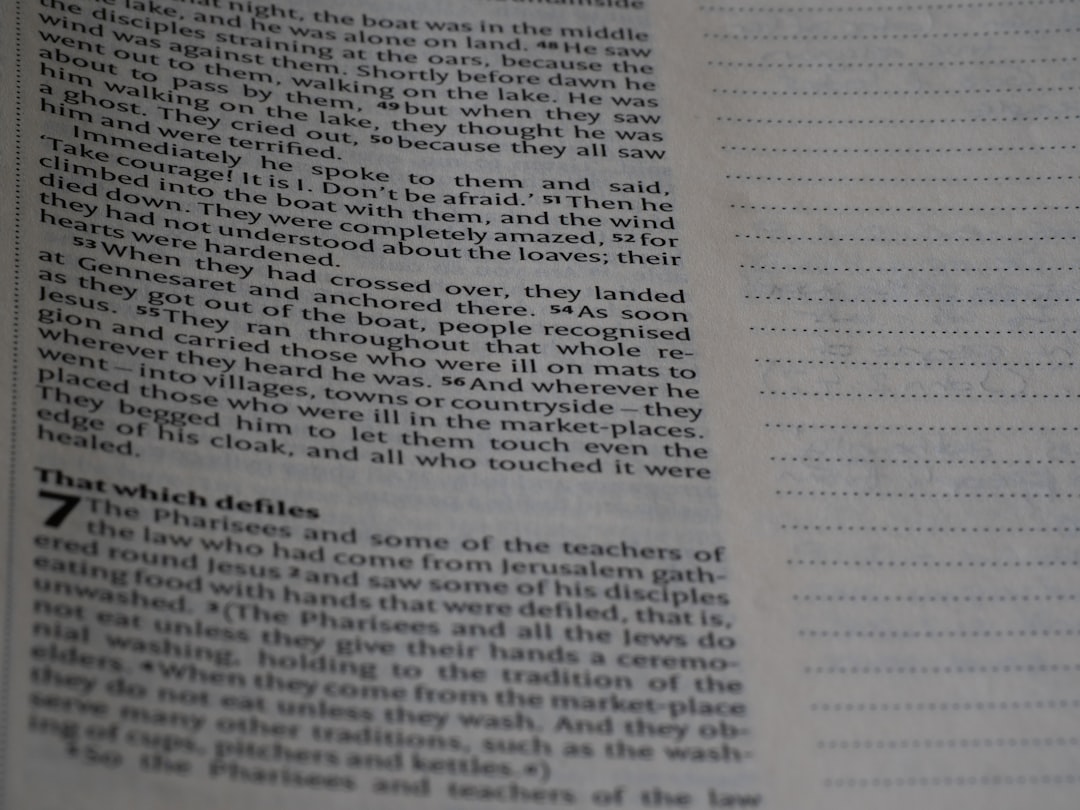 night, the boat was in the middle
lake, and he was alone on land. 48 He saw
the disciples straining at the oars, because the
wind was against them. Shortly before dawn he
went out to them, walking on the lake. He was
about to pass by them, 49 but when they saw
him walking on the lake, they thought he was
a ghost. They cried out, 50 because they all saw
him and were terrified.
Immediately he spoke to them and said,
‘Take courage! It is I. Don’t be afraid.’ 51 Then he
climbed into the boat with them, and the wind
died down. They were completely amazed, 52 for
they had not understood about the loaves; their
hearts were hardened.
53 When they had crossed over, they landed
at Gennesaret and anchored there. 54 As soon
as they got out of the boat, people recognised
Jesus. 55 They ran throughout that whole re-
gion and carried those who were ill on mats to
wherever they heard he was. 56 And wherever he
went – into villages, towns or countryside – they
placed those who were ill in the market-places.
They begged him to let them touch even the
edge of his cloak, and all who touched it were
healed.
That which defiles
7 The Pharisees and some of the teachers of
the law who had come from Jerusalem gath-
ered round Jesus 2 and saw some of his disciples
eating food with hands that were defiled, that is,
unwashed. 3 (The Pharisees and all the Jews do
not eat unless they give their hands a ceremo-
nial washing, holding to the tradition of the
elders. 4 When they come from the market-place
they do not eat unless they wash. And they ob-
serve many other traditions, such as the wash-
ing of cups, pitchers and kettles.)
5 So the Pharisees and teachers of the law